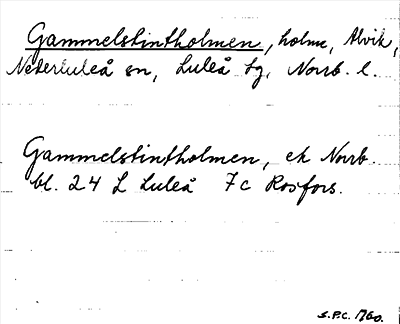 Gammelstintholmen, holme, Alvik,
Nederluleå sn, Luleå tg, Norrb. l.
Gammelstintholmen, ek Norrb.
bl. 24 L Luleå 7c Rosfors.
S.P.C. 1760.